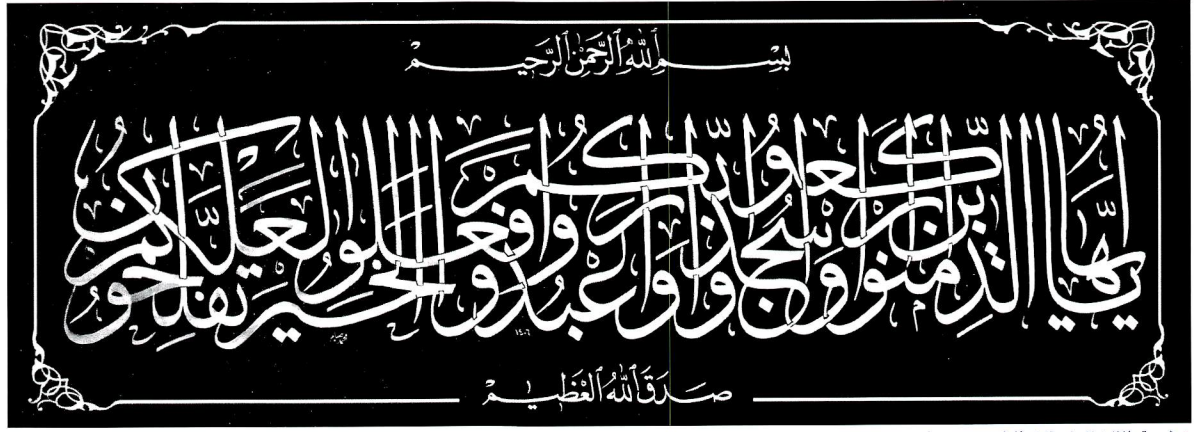 بِسْمِ ٱللَّهِ ٱلرَّحْمَٰنِ ٱلرَّحِيمِ
يَا أَيُّهَا الَّذِينَ آمَنُوا ارْكَعُوا وَاسْجُدُوا وَاعْبُدُوا رَبَّكُمْ وَافْعَلُوا الْخَيْرَ لَعَلَّكُمْ تُفْلِحُونَ
١٤٠٦
صَدَقَ ٱللَّهُ ٱلْعَظِيمُ